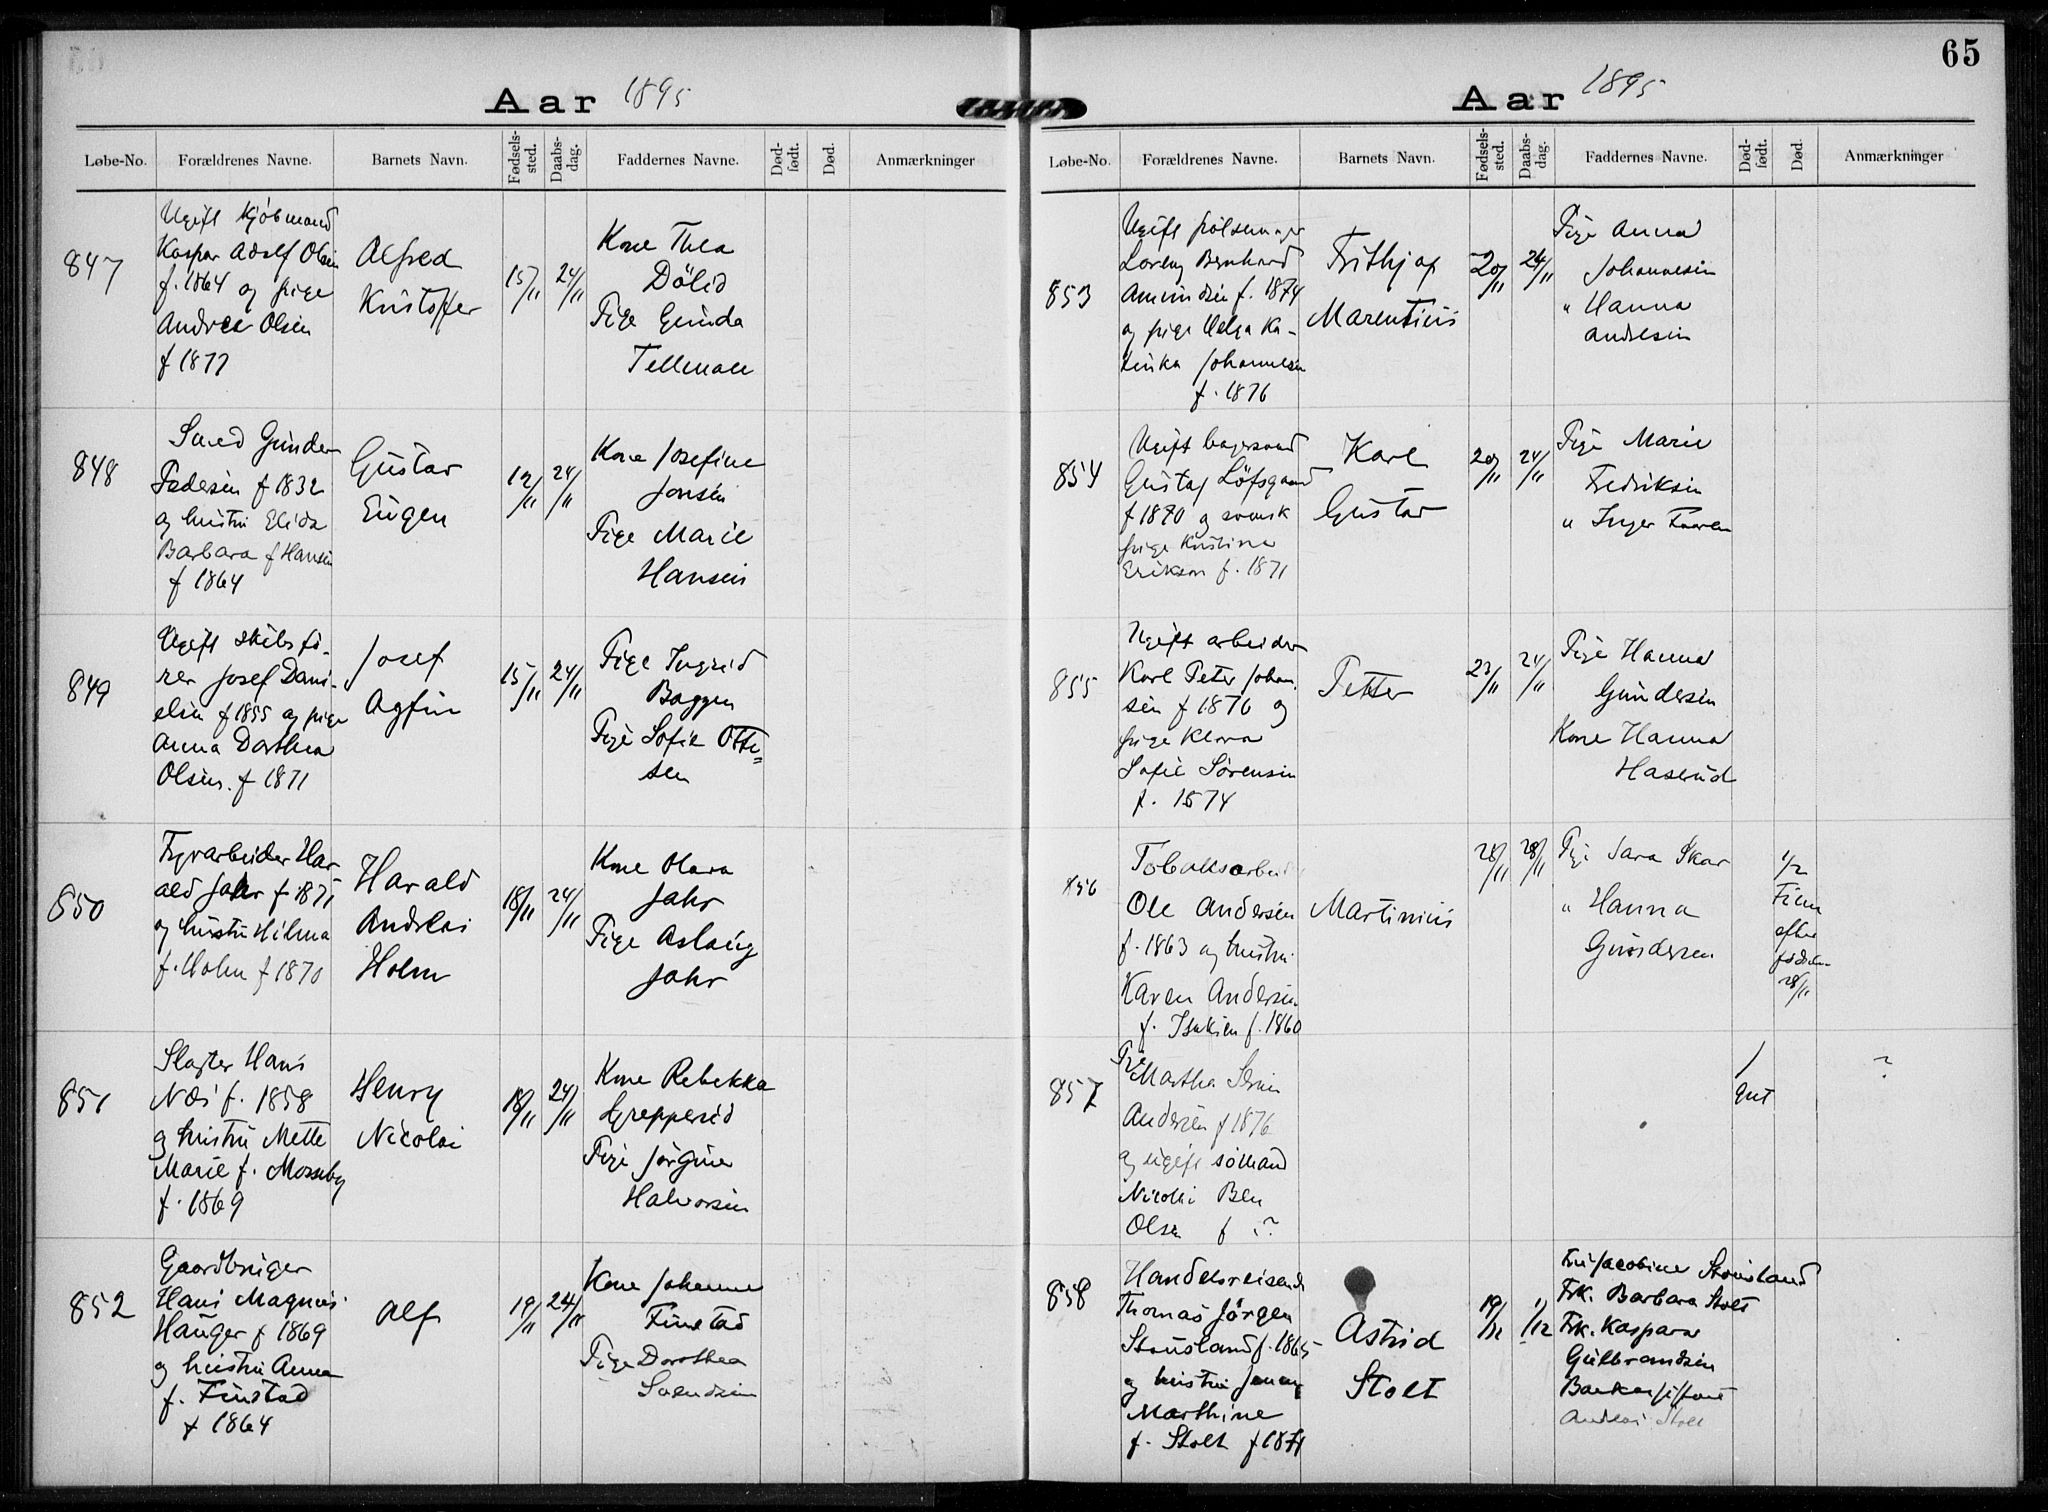 Aar 1895
Løbe-No. Forældrenes Navne. Barnets Navn. Fødsels-sted. Daabs-dag. Faddernes Navne. Død-født. Død. Anmærkninger
847
Ugift Kjøbmand
Kaspar Adolf Olsen
f. 1864 og pige
Andrea Olsen
f 1877
Alfred
Kristoffer
15/11
24/11
Kone Thea
Dölid
Pige Gunda
Tellman
848
Smed Gunder
Pedersen f 1832
og hustru Elida
Barbara f Hansen
f 1864
Gustav
Eugen
12/11
24/11
Kone Josefine
Jonsen
Pige Marie
Hansen
849
Ugift skibsfö-
rer Josef Dani-
elsen f 1855 og pige
Anna Dorthea
Olsen. f 1871
Josef
Agfin
15/11
24/11
Pige Ingrid
Baggen
Pige Sofie Otte=
sen
850
Fyrarbeider Har
ald Jahr f 1875
og hustru Hilma
f. Holm f 1870
Harald
Andreas
Holm
18/11
24/11
Kone Olava
Jahr
Pige Aslaug
Jahr
851
Slagter Hans
Næs f. 1858
og hustru Mette
Marie f. Mosseby
f. 1869
Henry
Nicolai
18/11
24/11
Kone Rebekka
Grepperud
Pige Jørgine
Halvorsen
852
Gaardbruger
Hans Magnus
Hauger f 1869
og hustru Anna
f. Finstad
f 1864
Alf
19/11
24/11
Kone Johanne
Finstad
Pige Dorothea
Svendsen
65
Aar 1895
Løbe-No. Forældrenes Navne. Barnets Navn. Fødsels-sted. Daabs-dag. Faddernes Navne. Død-født. Død. Anmærkninger
853
Ugift pölsemager
Lorenz Bernhard
Amundsen f. 1874
og pige Helga Ka-
tinka Johannesen
f. 1876
Frithjof
Marentius
20/11
24/11
Pige Anna
Johannesen
" Hanna
Andresen
854
Ugift bagersvend
Gustaf Löfsgaard
f 1870 og svensk
pige Kristina
Erikson f. 1871
Karl
Gustav
20/11
24/11
Pige Marie
Fredriksen
" Inger
855
Ugift arbeider
Karl Peter Johan
sen f 1870 og
pige Klara
Sofie Sørensen
f. 1874
Petter
23/11
24/11
Pige Hanna
Gundersen
Kone Hanna
Haserud
856
Tobaksarbei
Ole Andersen
f. 1863 og hustru
Karen Andersen
f. Isaksen f. 1860
Martinius
28/11
28/11
Pige Sara Skar
" Hanna
Gundersen
1/2
Time
efter
fødselen
28/11
857
Pige
Martha
Andersen f 1876
og ugift sömand
Nicolai
Olsen f ?
1
Gut
?
858
Handelsreisende
Thomas Jörgen
Stousland f. 1865
og hustru Jenny
Marthine
f. Stolt f 1871
Astrid
Stolt
19/11
1/12
Fru Jacobine Stousland
Frk. Barbara Stolt
Frk. Kaspara
Gulbrandsen
Andreas Stolt